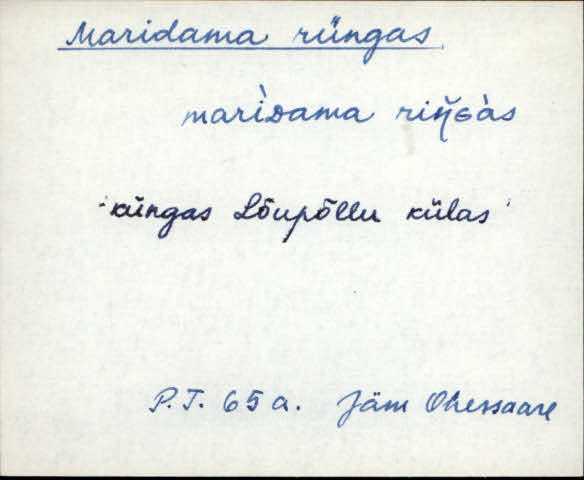 Maridama rüngas
mariDama riŋ̆Gàs
'küngas Lõupõllu külas'
P.T. 65 a. Jäm Ohessaare